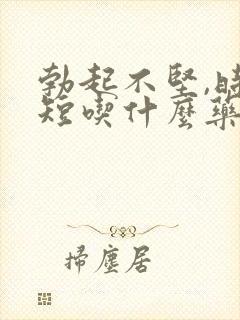 勃起不堅,時
短喫什麼藥
掃塵居